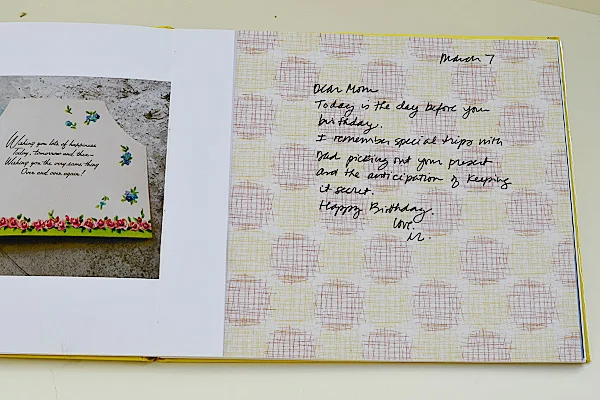 Wishing you lots of happiness
Today, tomorrow and then—
Wishing you the very same thing
Over and over again!
March 7
Dear Mom
Today is the day before your
birthday.
I remember special trips with
Dad picking out your present
and the anticipation of keeping
it secret.
Happy Birthday.
Love.
M.